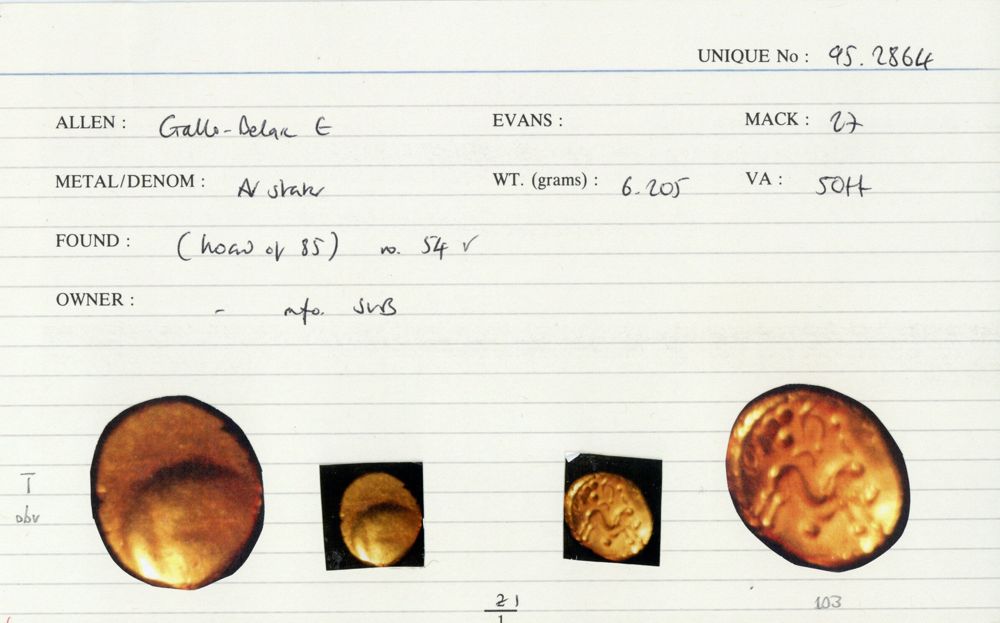 UNIQUE No : 95.2864
ALLEN : Gallo-Belgic E EVANS : MACK : 27
METAL/DENOM : AV stater WT. (grams) : 6.205 VA : 50++
FOUND : (hoard of 85) no. 54 √
OWNER : - info. SVB
I
obv
21
1
103